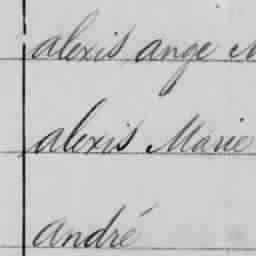 alexis ange
alexis Marie
andré